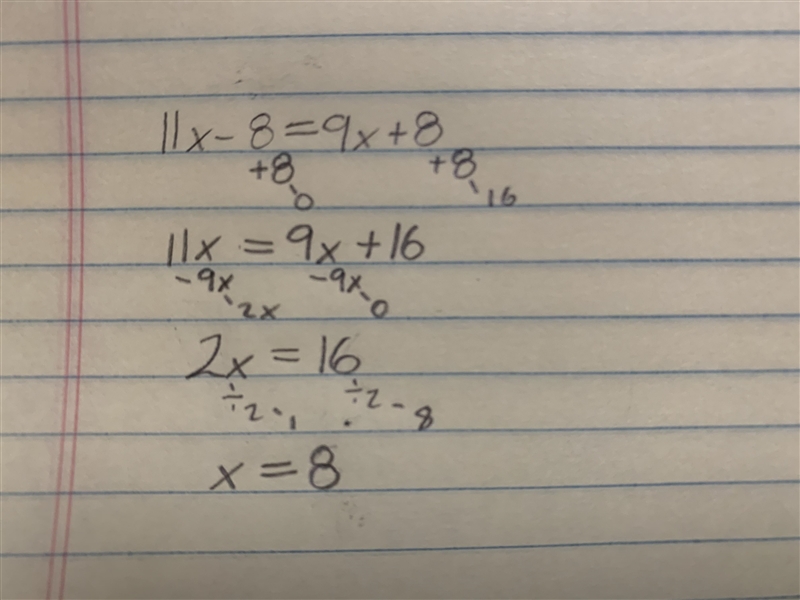 11x - 8 = 9x + 8
+8 +8
0 16
11x = 9x + 16
-9x -9x
2x 0
2x = 16
÷2 - 1 ÷2 - 8
x = 8